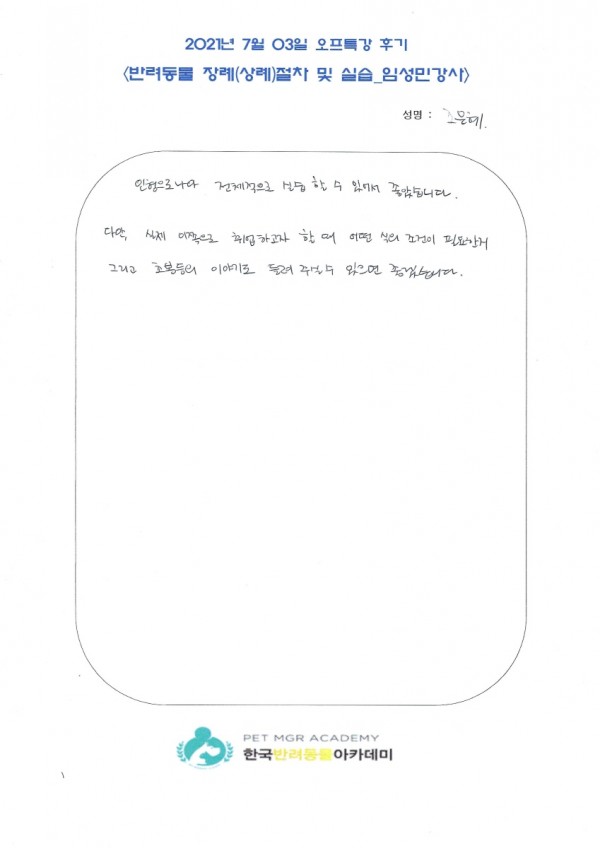 2021년 7월 03일 오프특강 후기
<반려동물 장례(상례)절차 및 실습_임성민강사>
성명 : 조은혜.
인형으로나마 전체적으로 실습 할 수 있어서 좋았습니다.
다만, 실제 이쪽으로 취업하고자 할 때 어떤 식의 조건이 필요한지
그리고 초봉등의 이야기도 들려 주실 수 있으면 좋겠습니다.
PET MGR ACADEMY
한국반려동물아카데미